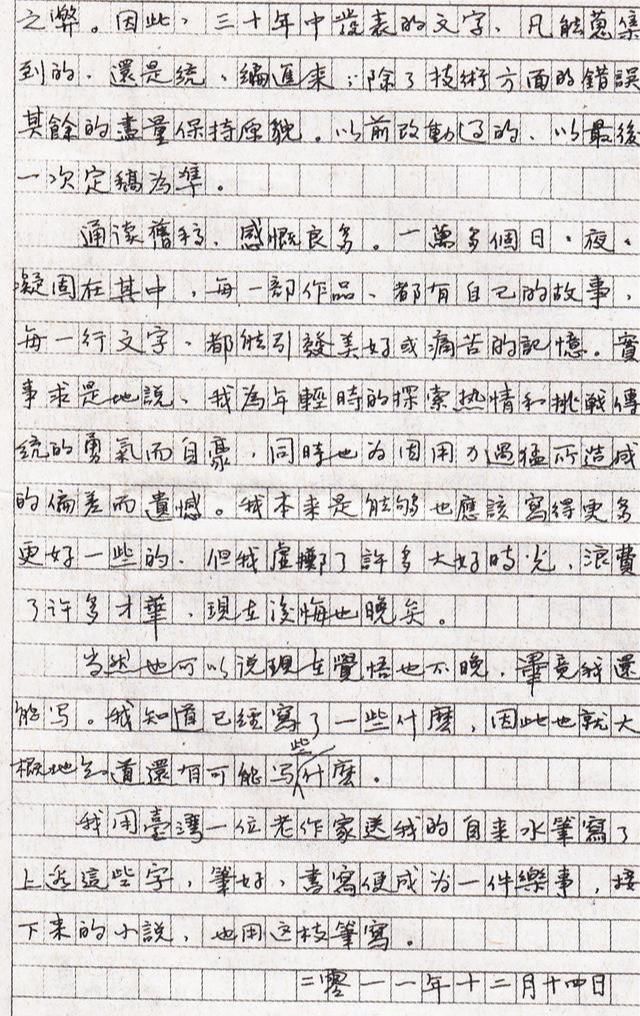 之弊。因此，三十年中發表的文字，凡能蒐集
到的，還是統、編進来；除了技術方面的錯誤
其餘的盡量保持原貌。以前改動过的，以最後
一次定稿為準。
通读舊稿，感慨良多。一萬多個日、夜、
凝固在其中，每一部作品、都有自己的故事，
每一行文字，都能引發美好或痛苦的記憶。實
事求是地說，我為年輕時的探索热情和挑戰傳
统的勇氣而自豪，同時也为因用力過猛所造成
的偏差而遺憾。我本来是能够也應該寫得更多
更好一些的，但我虛擲了許多大好時光，浪費
了许多才華，現在後悔也晚矣。
当然也可以说現在覺悟也不晚，畢竟我還
能写。我知道已經寫了一些什麼，因此也就大
概地知道還有可能写些什麼。
我用臺灣一位老作家送我的自来水筆寫了
上述這些字，筆好，書寫便成为一件樂事，接
下来的小說，也用这枝筆寫。
二零一一年十二月十四日